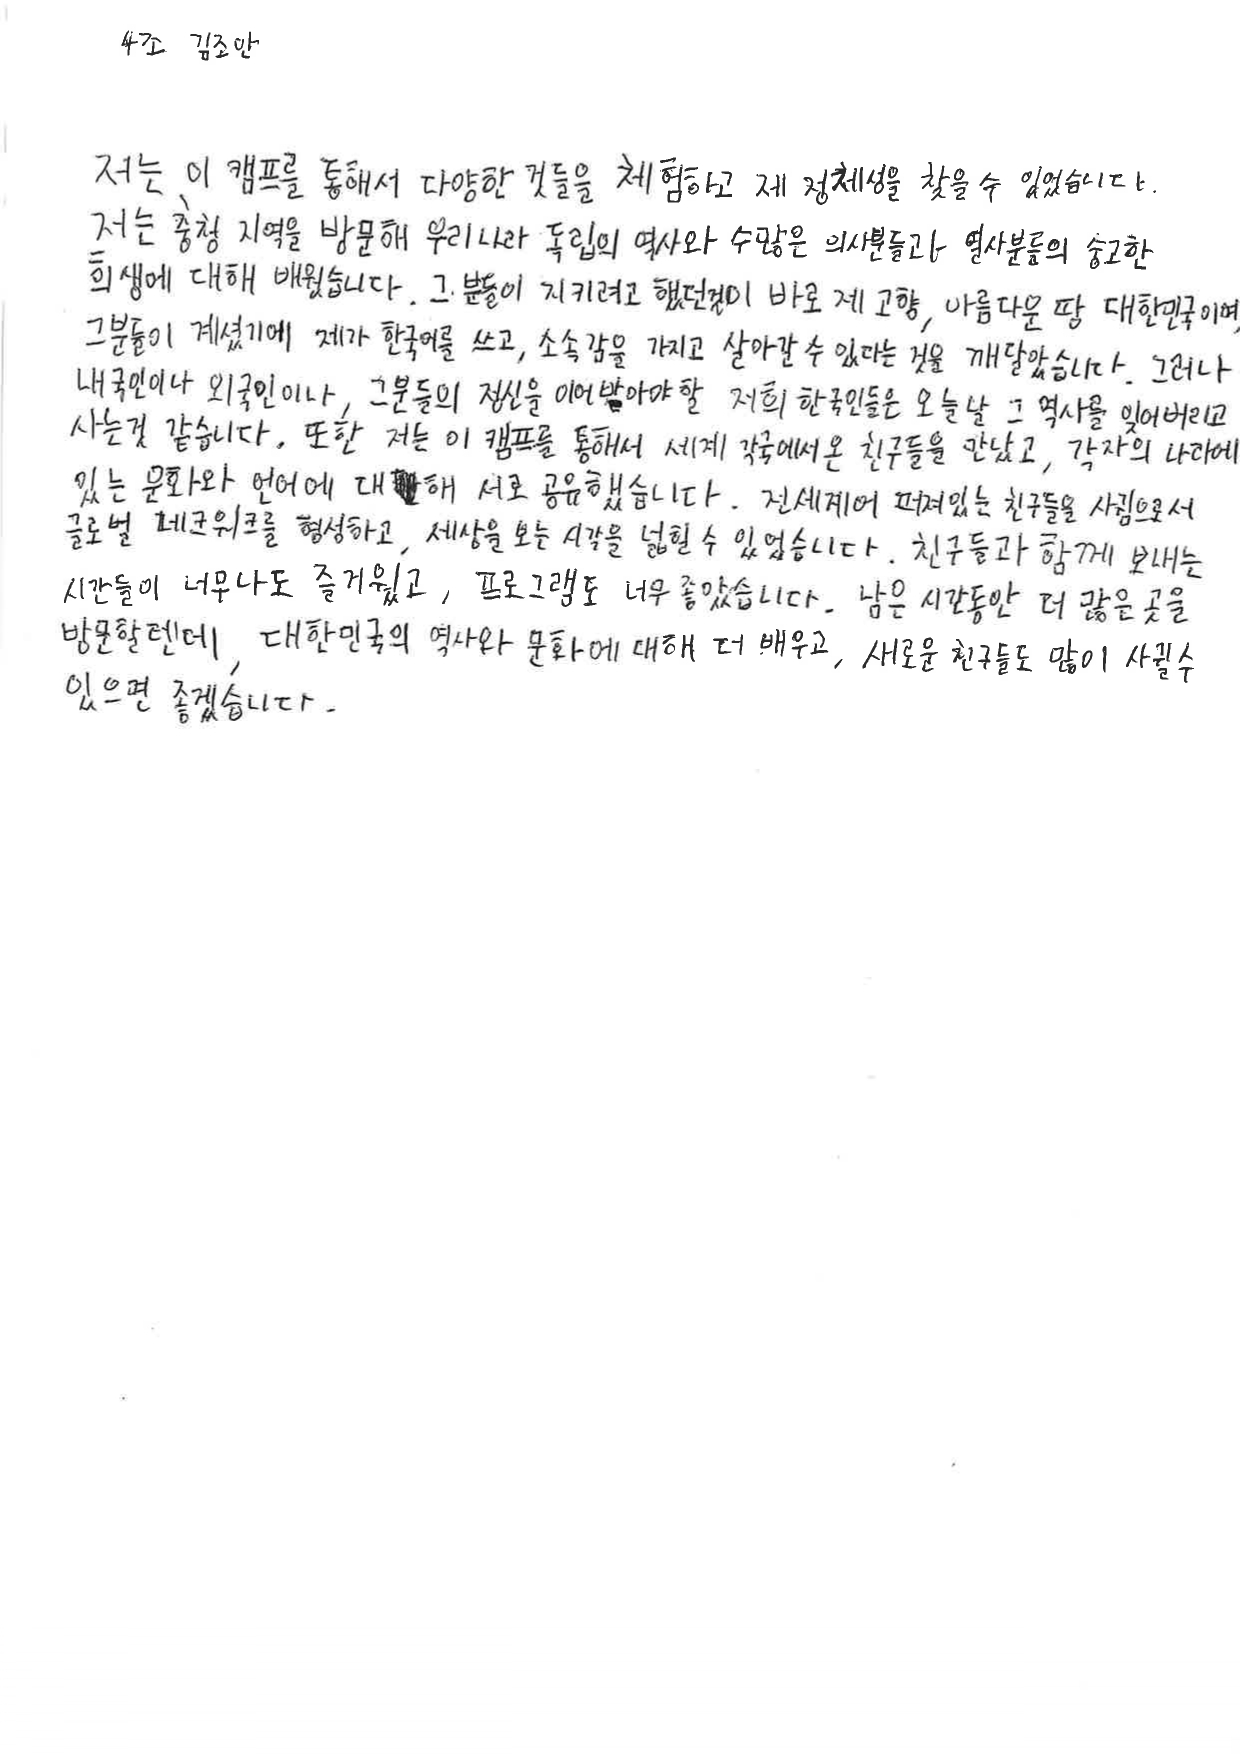 4조 김조안
저는 이 캠프를 통해서 다양한 것들을 체험하고 제 정체성을 찾을 수 있었습니다.
저는 충청 지역을 방문해 우리나라 독립의 역사와 수많은 의사분들과 열사분들의 숭고한
희생에 대해 배웠습니다. 그분들이 지키려고 했던것이 바로 제 고향, 아름다운 땅 대한민국이며,
그분들이 계셨기에 제가 한국어를 쓰고, 소속감을 가지고 살아갈 수 있다는 것을 깨달았습니다. 그러나
내국인이나 외국인이나, 그분들의 정신을 이어받아야 할 저희 한국인들은 오늘날 그 역사를 잊어버리고
사는것 같습니다. 또한 저는 이 캠프를 통해서 세계 각국에서 온 친구들을 만났고, 각자의 나라에
있는 문화와 언어에 대해 서로 공유했습니다. 전세계에 퍼져있는 친구들을 사귐으로서
글로벌 네크워크를 형성하고, 세상을 보는 시각을 넓힐 수 있었습니다. 친구들과 함께 보내는
시간들이 너무나도 즐거웠고, 프로그램도 너무 좋았습니다. 남은 시간동안 더 많은 곳을
방문할텐데, 대한민국의 역사와 문화에 대해 더 배우고, 새로운 친구들도 많이 사귈 수
있으면 좋겠습니다.